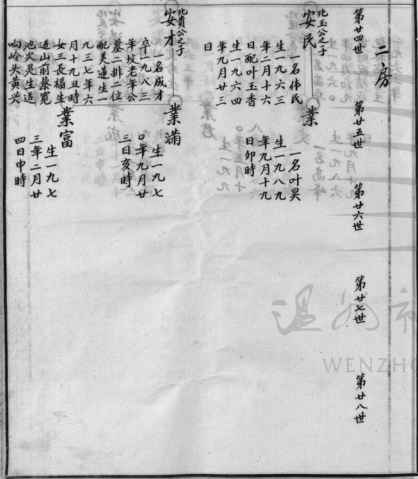 二房
第廿四世
第廿五世
第廿六世
第廿七世
第廿八世
兆玉公之子
安民
一名伟民
生一九六三
年二月十六
日配叶玉香
生一九六四
年九月廿三
日
業
一名叶昊
生一九八九
年九月十九
日卯時
兆貴公之子
安才
一名成才
卒一九八三
年坟老年公
墓二排二位
配吴蓮生一
九三七年六
月十九丑時
女三長福生
道山前蔡宽
池次是生适
响岭头黄尖
業满
生一九七
〇年九月廿
三日亥時
業富
生一九七
三年二月廿
四日申時
温州市
WENZHO